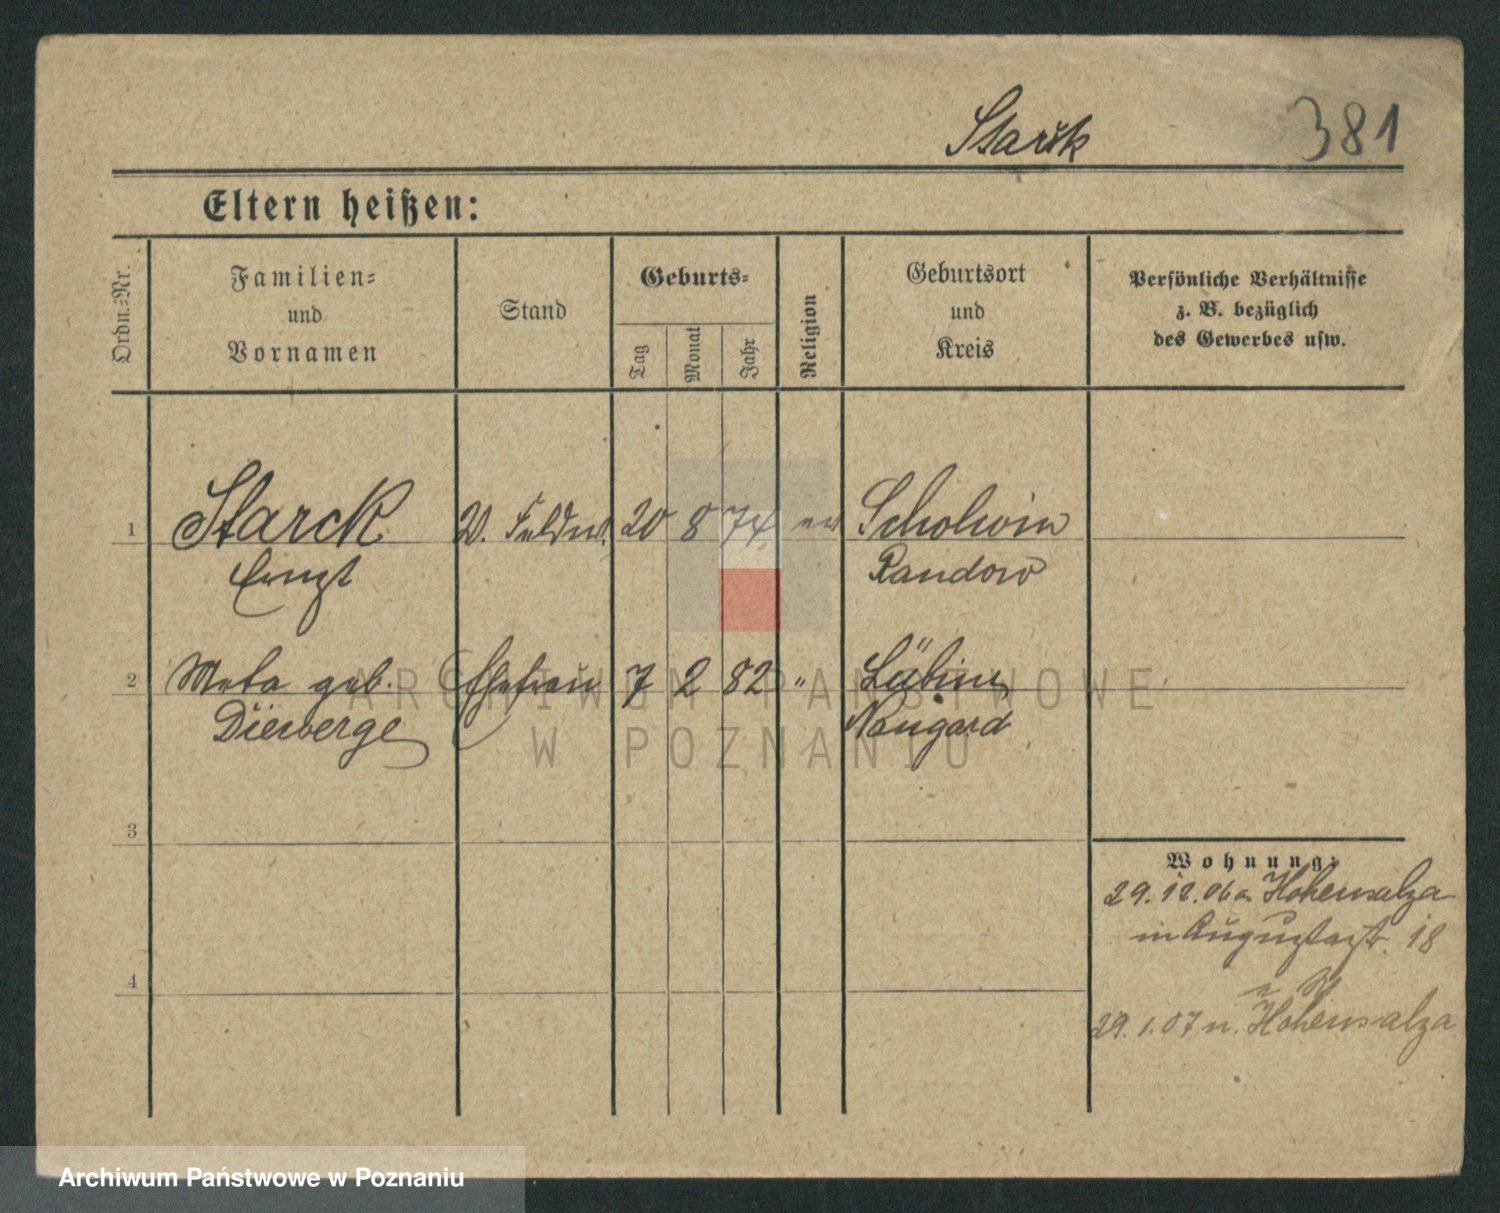 Starck 381
Eltern heißen:
Ordn.=Nr.
Familien=
und
Vornamen
Stand
Geburts=
Tag
Monat
Jahr
Religion
Geburtsort
und
Kreis
Persönliche Verhältnisse
z. B. bezüglich
des Gewerbes usw.
1 Starck V. Feldw. 20 8 74 ev Scholwin
Ernst Randow
2 Meta geb. Ehefrau 7 2 82 " Lübzin
Diewerge Naugard
3
4
Wohnung:
29.12.06 a. Hohensalza
in Augustastr. 18
29.1.07 n. Hohensalza
ARCHIWUM PAŃSTWOWE
W POZNANIU
Archiwum Państwowe w Poznaniu